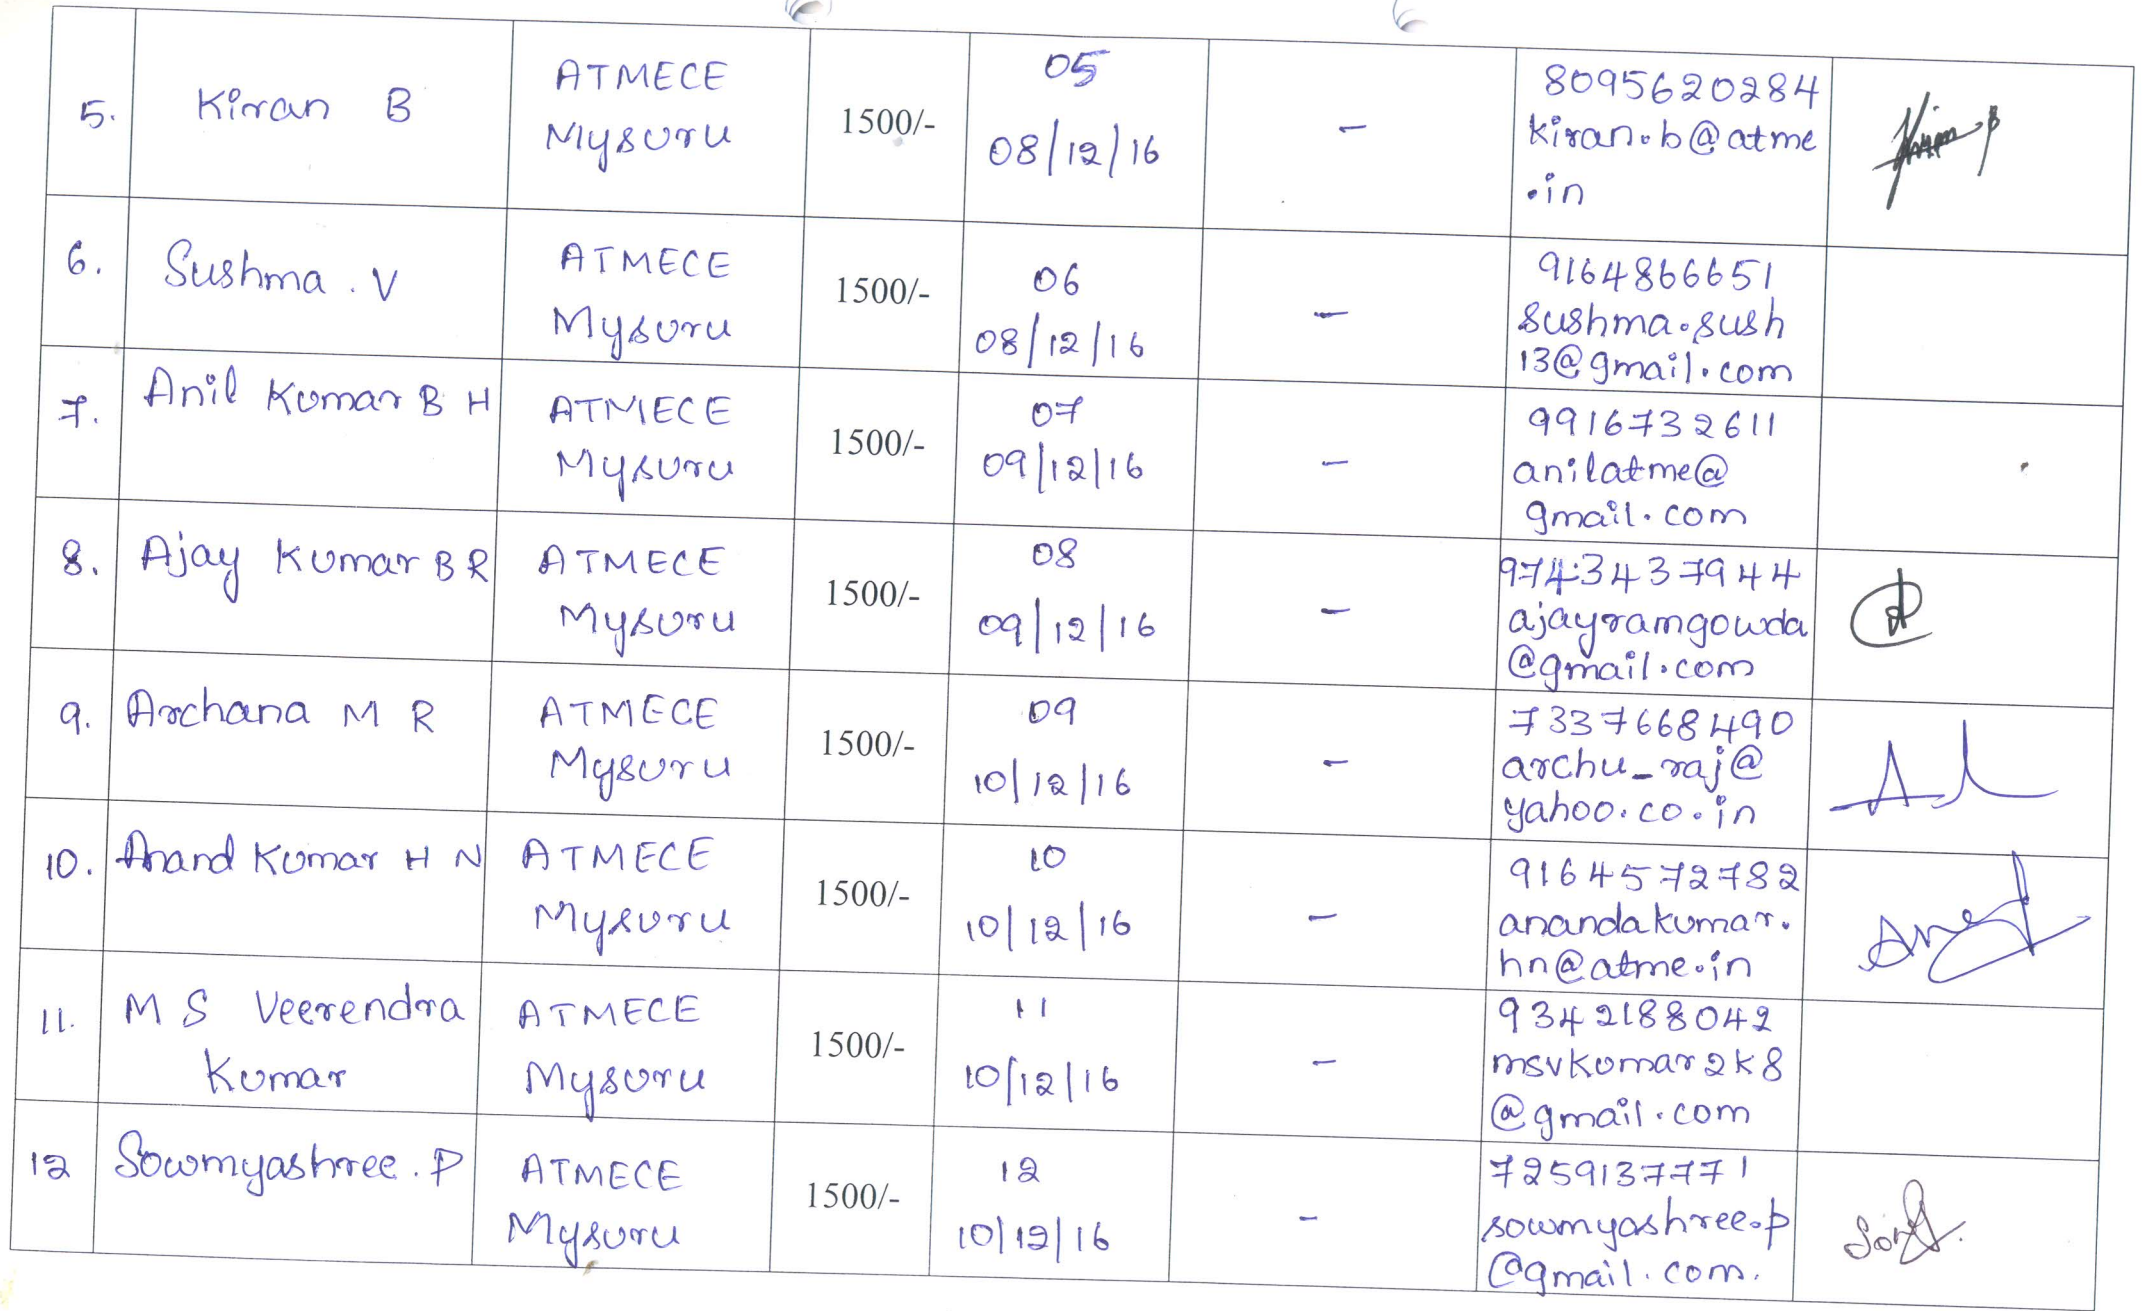 5.
Kiran B
ATMECE
Mysuru
1500/-
05
08/12/16
-
8095620284
kiran.b@atme
.in
6.
Sushma . V
ATMECE
Mysuru
1500/-
06
08/12/16
-
9164866651
sushma.sush
13@gmail.com
7.
Anil Kumar B H
ATMECE
Mysuru
1500/-
07
09/12/16
-
9916732611
anilatme@
gmail.com
8.
Ajay Kumar B R
ATMECE
Mysuru
1500/-
08
09/12/16
-
9743437944
ajayramgowda
@gmail.com
9.
Archana M R
ATMECE
Mysuru
1500/-
09
10/12/16
-
7337668490
archu_raj@
yahoo.co.in
10.
Anand Kumar H N
ATMECE
Mysuru
1500/-
10
10/12/16
-
9164572782
anandakumar.
hn@atme.in
11.
M S Veerendra
Kumar
ATMECE
Mysuru
1500/-
11
10/12/16
-
9342188042
msvkumar2k8
@gmail.com
12
Sowmyashree . P
ATMECE
Mysuru
1500/-
12
10/12/16
-
7259137771
sowmyashree.p
@gmail.com.